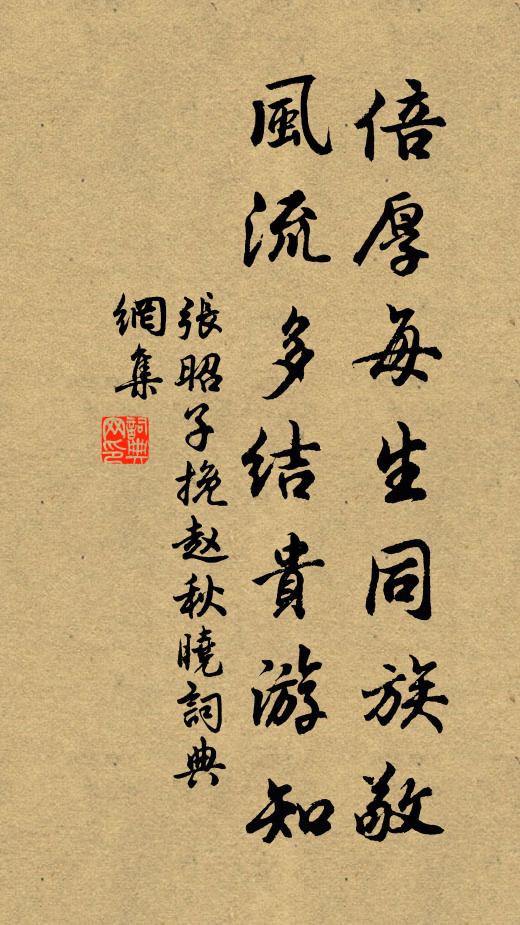 倍厚每生同族敬
風流多結貴游知
張昭子挽赵秋曉詞典
網集
詞典
网印